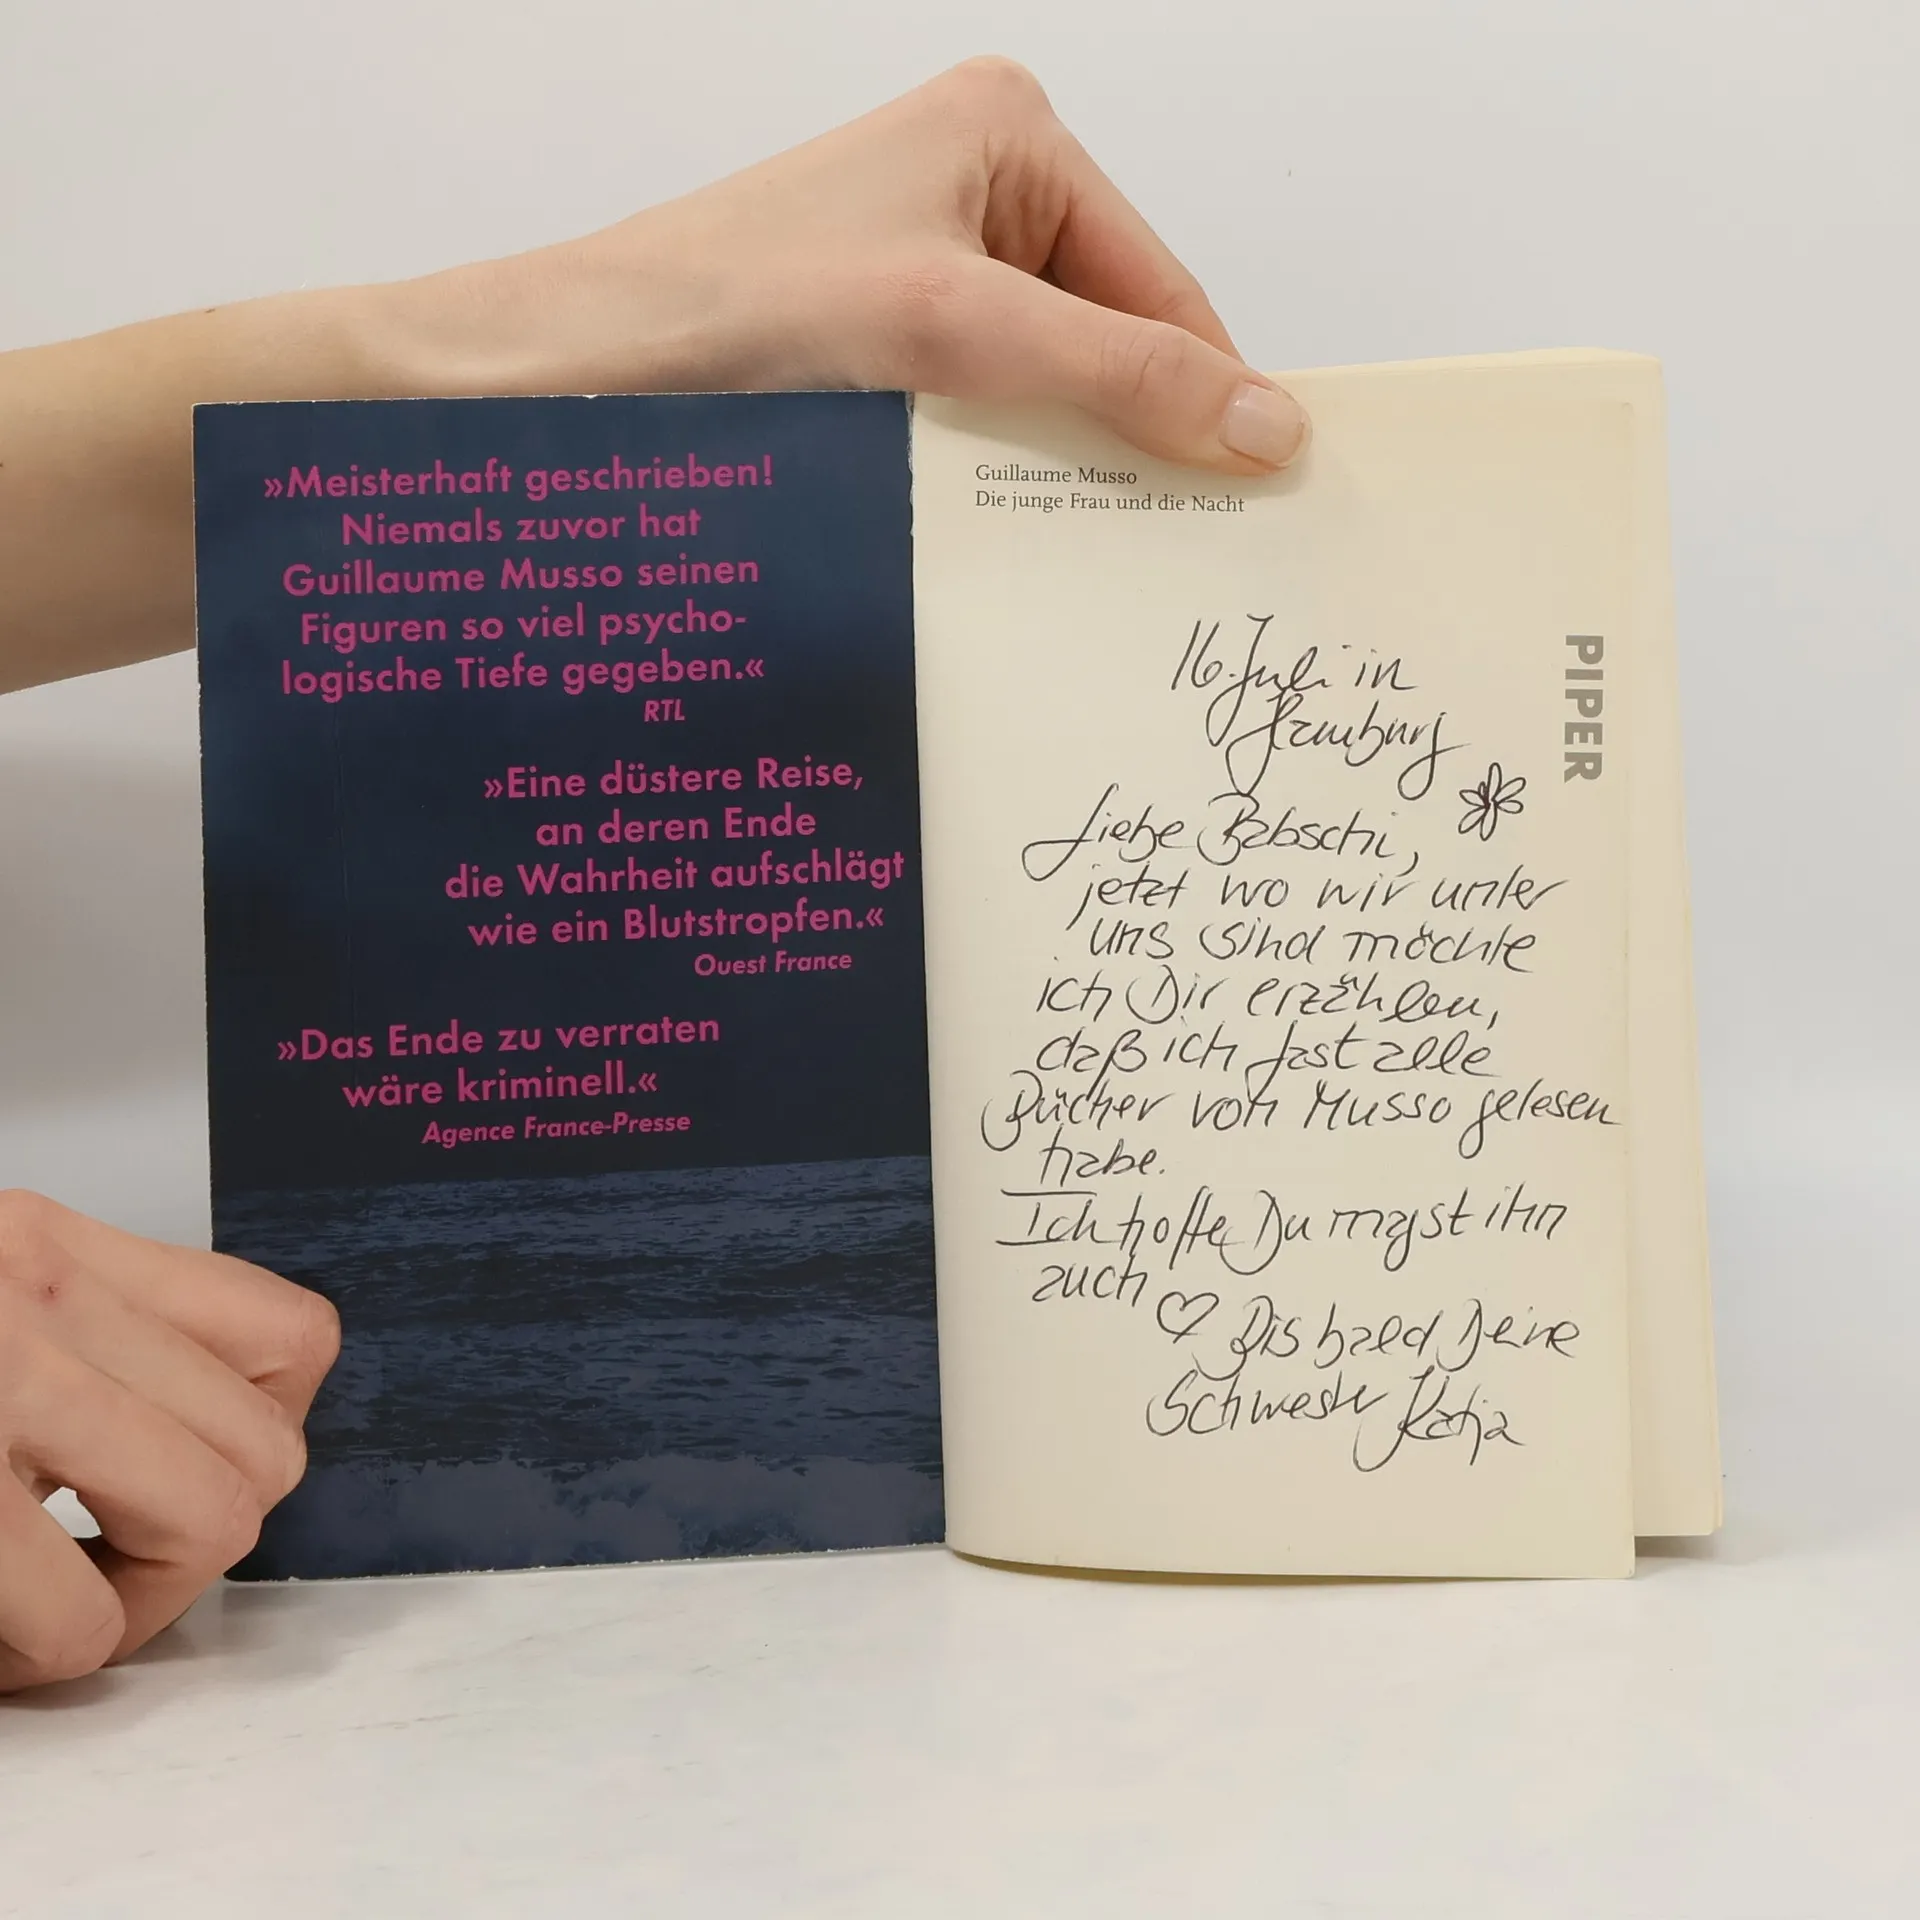 »Meisterhaft geschrieben!
Niemals zuvor hat
Guillaume Musso seinen
Figuren so viel psycho-
logische Tiefe gegeben.«
RTL
»Eine düstere Reise,
an deren Ende
die Wahrheit aufschlägt
wie ein Blutstropfen.«
Ouest France
»Das Ende zu verraten
wäre kriminell.«
Agence France-Presse
Guillaume Musso
Die junge Frau und die Nacht
PIPER
16. Juli in
Hamburg
Liebe Babschi,
jetzt wo wir unter
uns sind möchte
ich Dir erzählen,
daß ich fast alle
Bücher von Musso gelesen
habe.
Ich hoffe Du magst ihn
auch ♡ Bis bald Deine
Schwester Katja